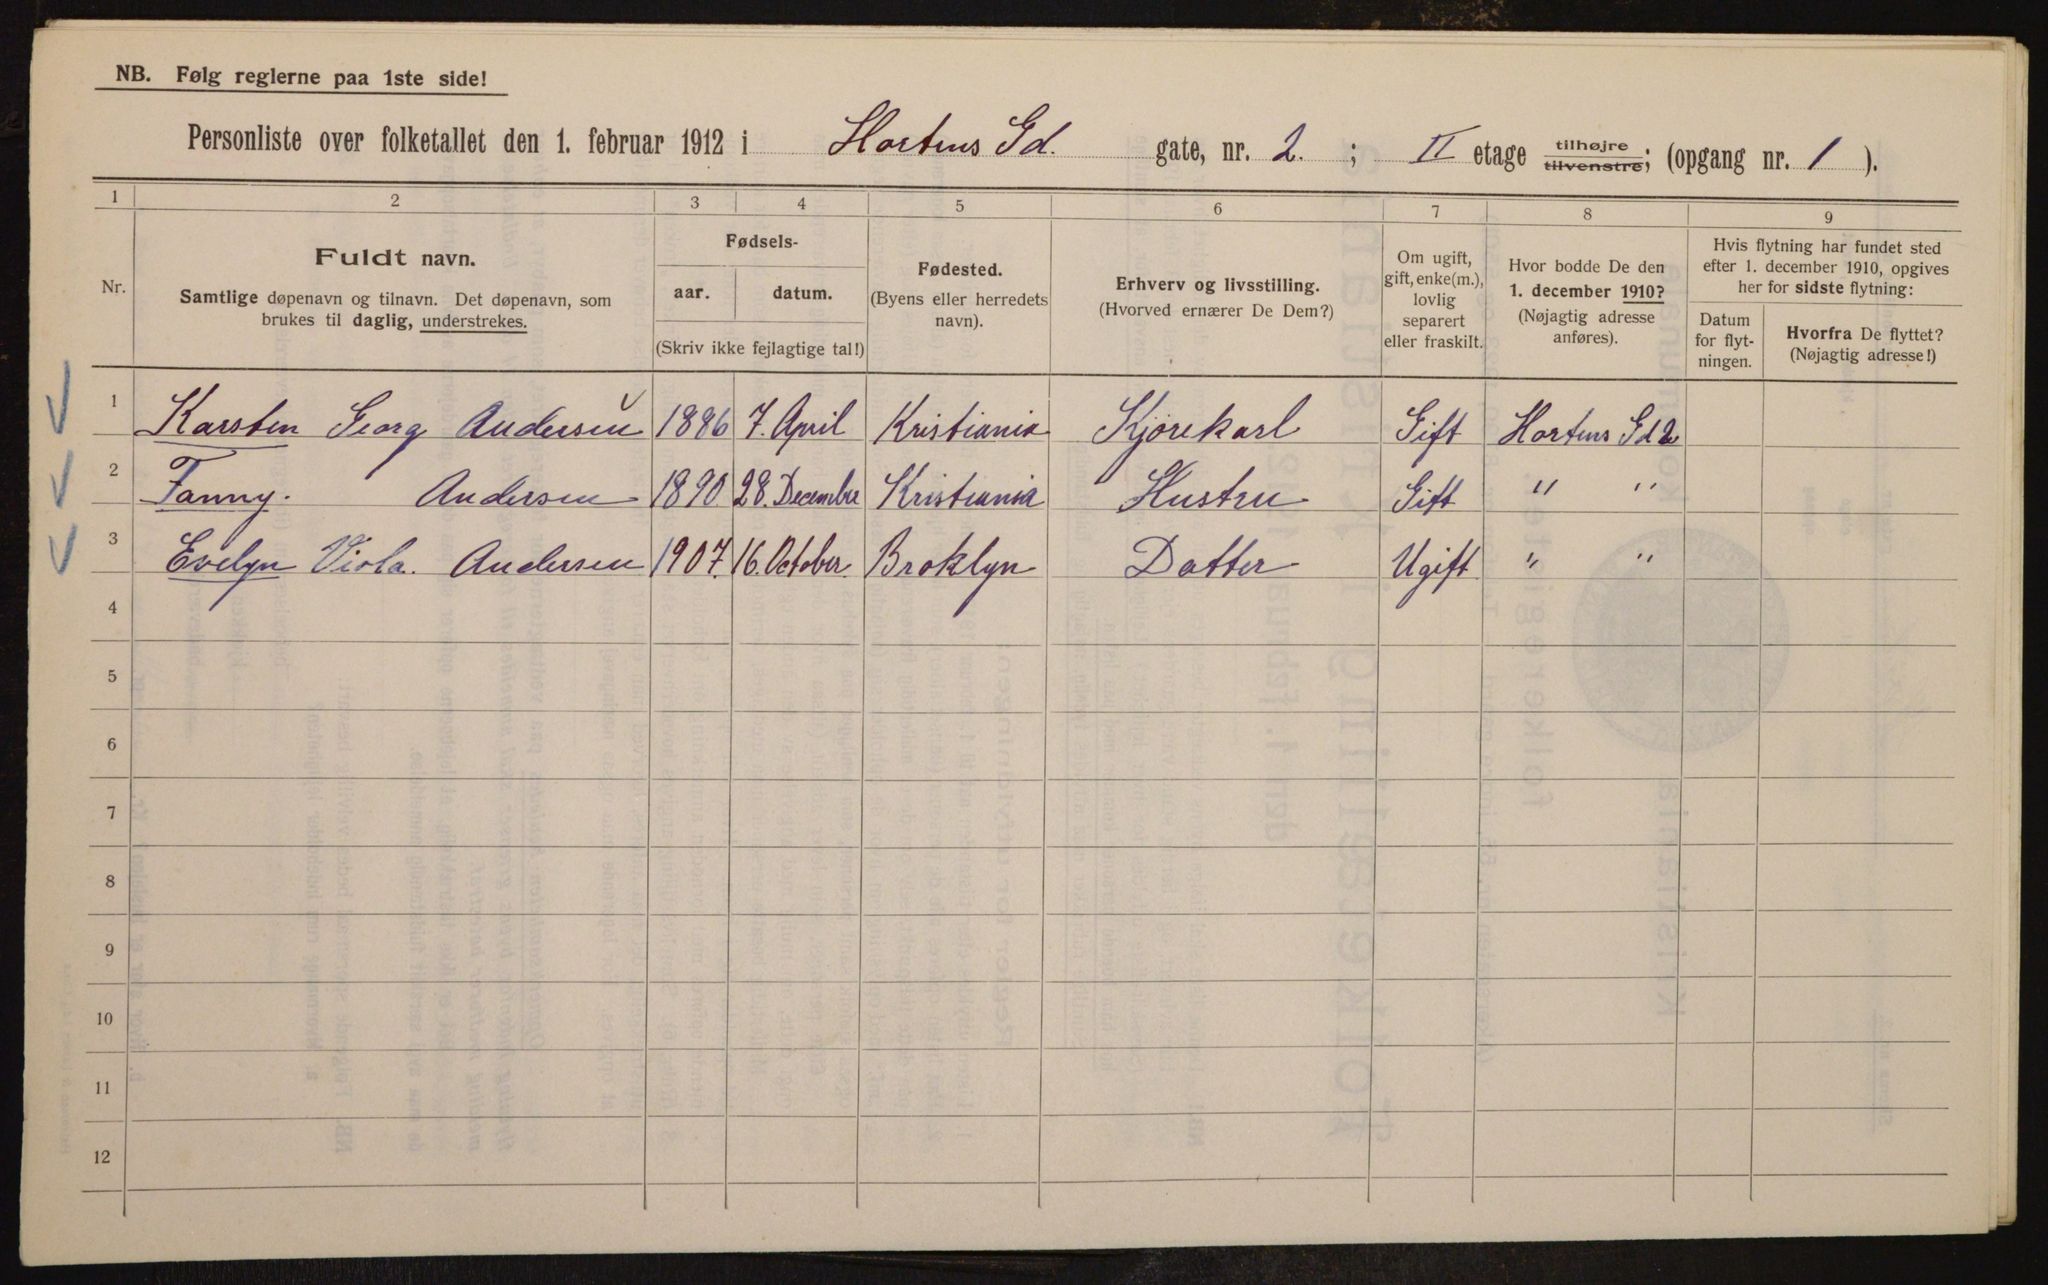 NB. Følg reglerne paa 1ste side!
Personliste over folketallet den 1. februar 1912 i Hortens Gd. gate, nr. 2. ; II etage tilhøjre tilvenstre; (opgang nr. 1 ).
1 2 3 4 5 6 7 8 9
Nr.
Fuldt navn.
Samtlige døpenavn og tilnavn. Det døpenavn, som
brukes til daglig, understrekes.
Fødsels-
aar. datum.
(Skriv ikke fejlagtige tal!)
Fødested.
(Byens eller herredets
navn).
Erhverv og livsstilling.
(Hvorved ernærer De Dem?)
Om ugift,
gift, enke(m.),
lovlig
separert
eller fraskilt.
Hvor bodde De den
1. december 1910?
(Nøjagtig adresse
anføres).
Hvis flytning har fundet sted
efter 1. december 1910, opgives
her for sidste flytning:
Datum
for flyt-
ningen.
Hvorfra De flyttet?
(Nøjagtig adresse!)
1 Karsten Georg Andersen 1886 7. April Kristiania Kjørekarl Gift Hortens Gd 2
2 Fanny. Andersen 1890. 28. December Kristiania Hustru Gift " "
3 Evelyn Viola. Andersen 1907. 16. October. Broklyn Datter Ugift " "
4
5
6
7
8
9
10
11
12